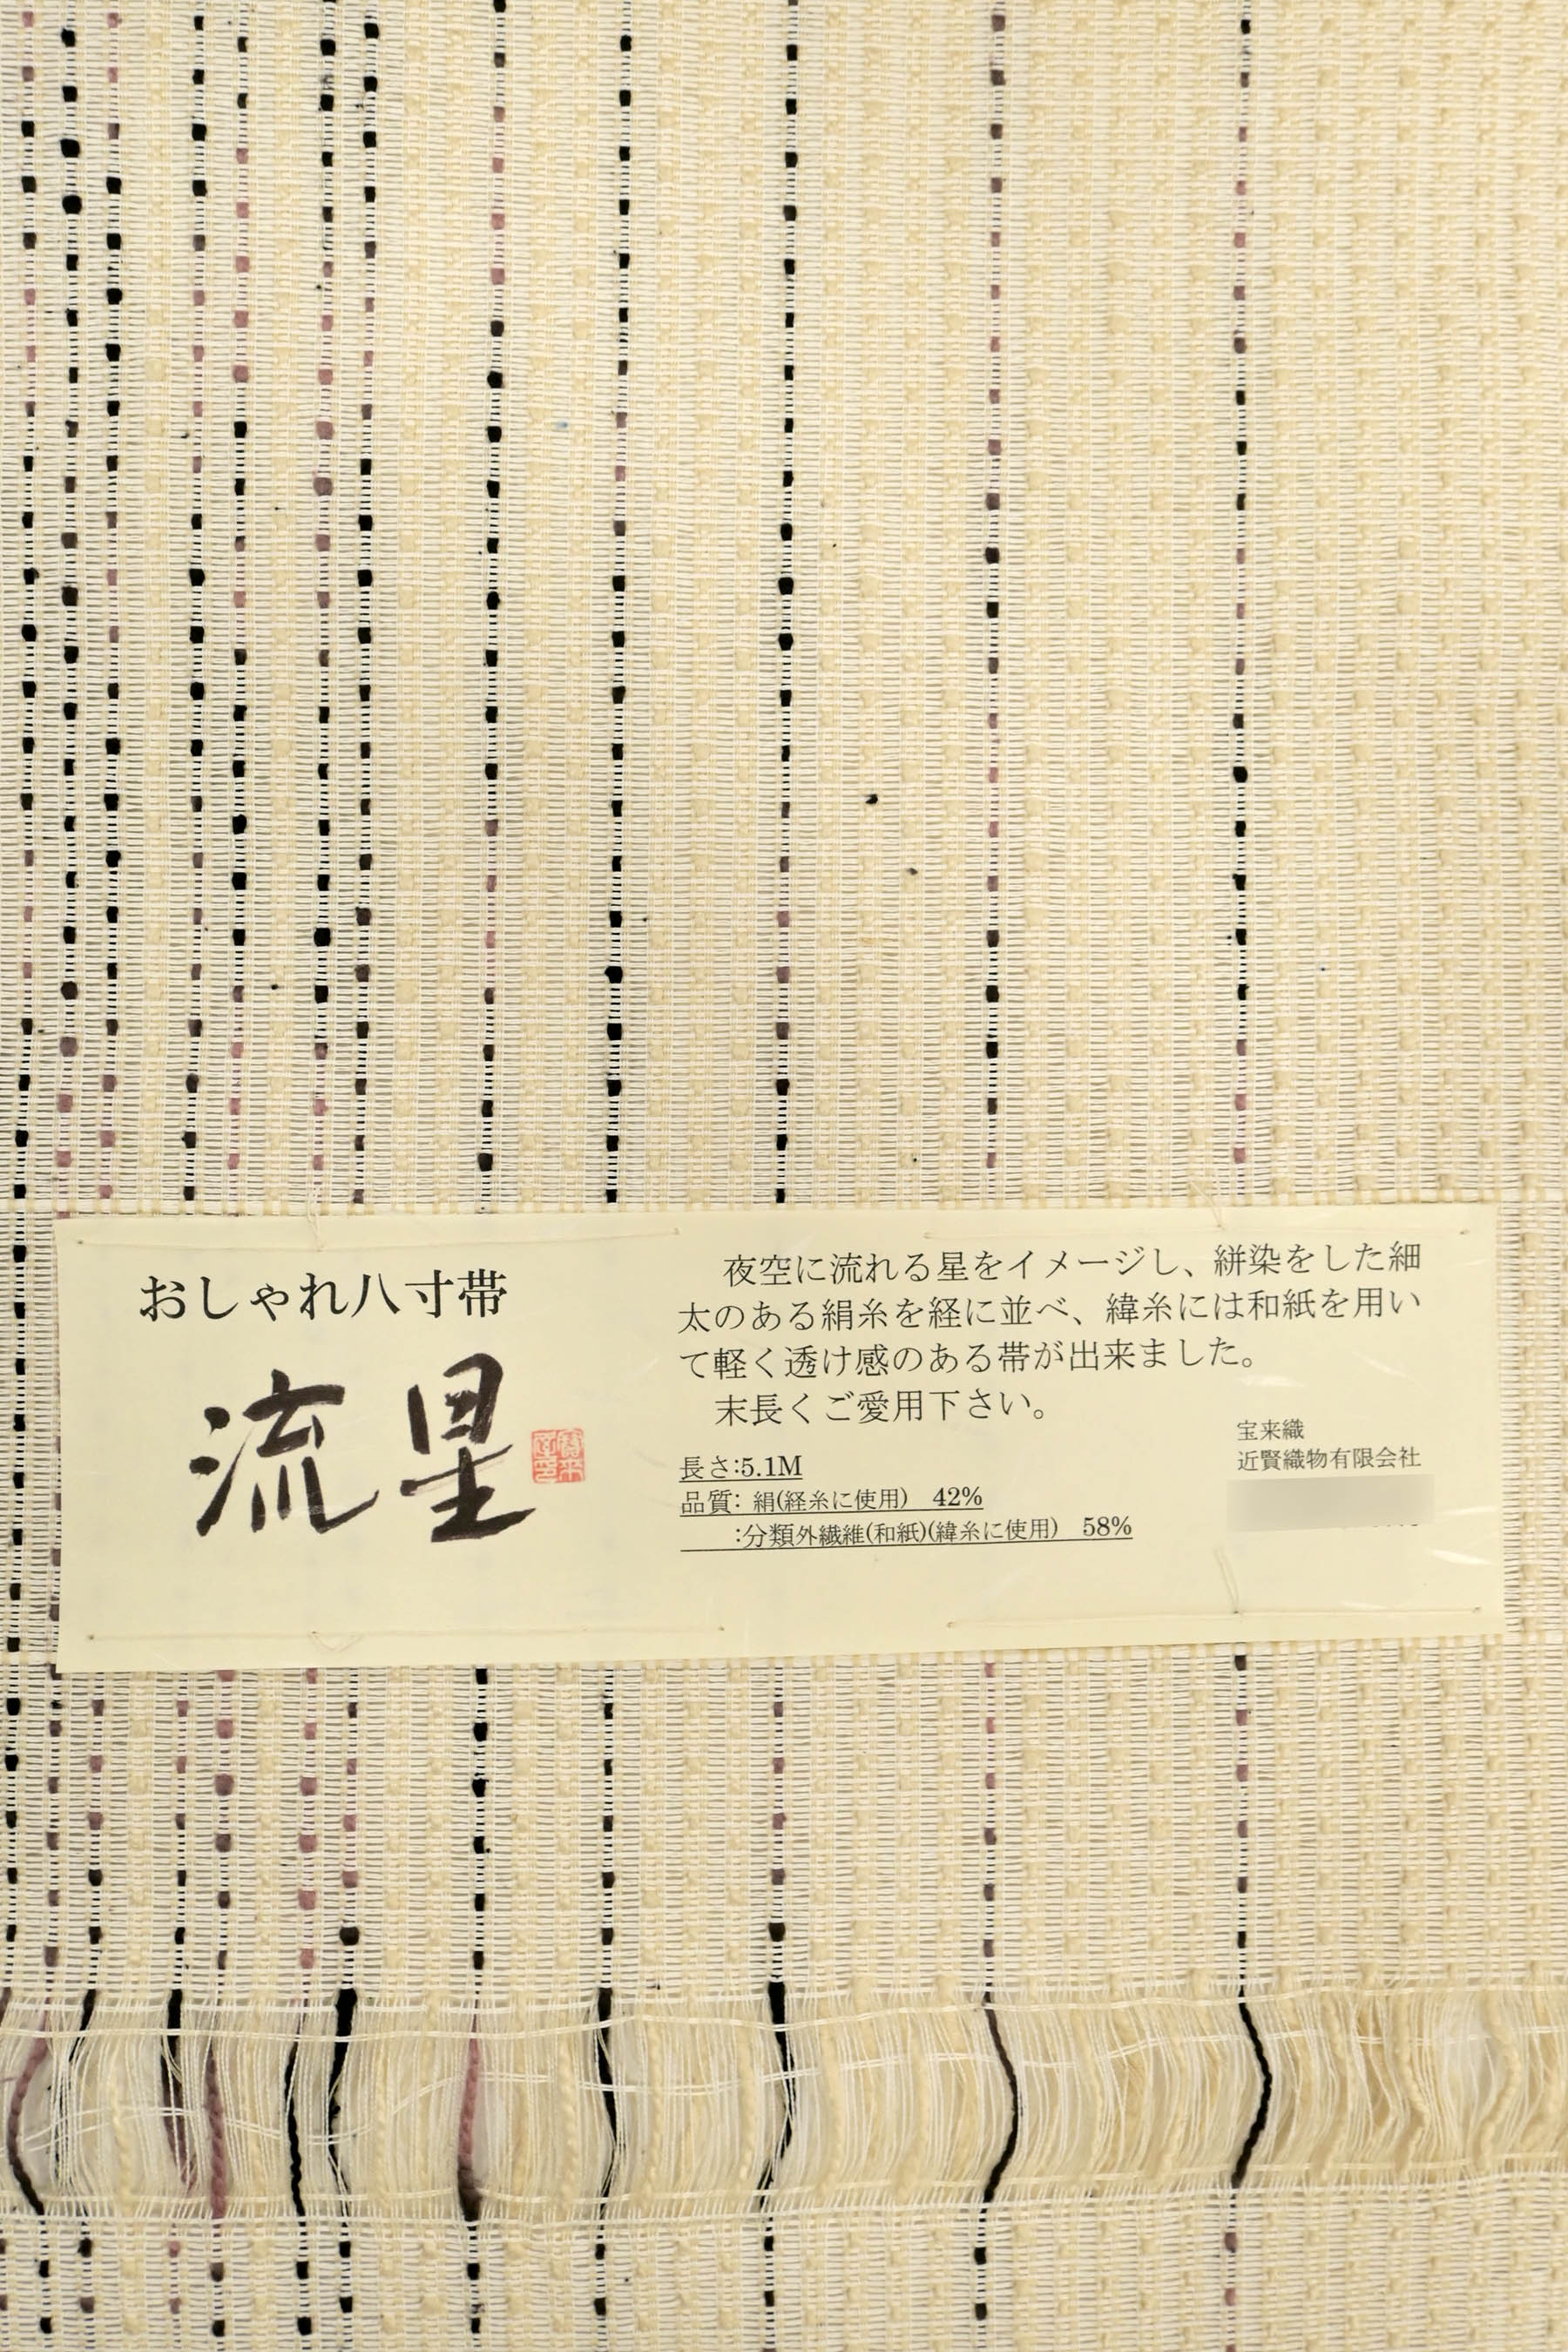 おしゃれ八寸帯
流星
夜空に流れる星をイメージし、絣染をした細
太のある絹糸を経に並べ、緯糸には和紙を用い
て軽く透け感のある帯が出来ました。
末長くご愛用下さい。
長さ:5.1M
品質: 絹(経糸に使用) 42%
:分類外繊維(和紙)(緯糸に使用) 58%
宝来織
近賢織物有限会社